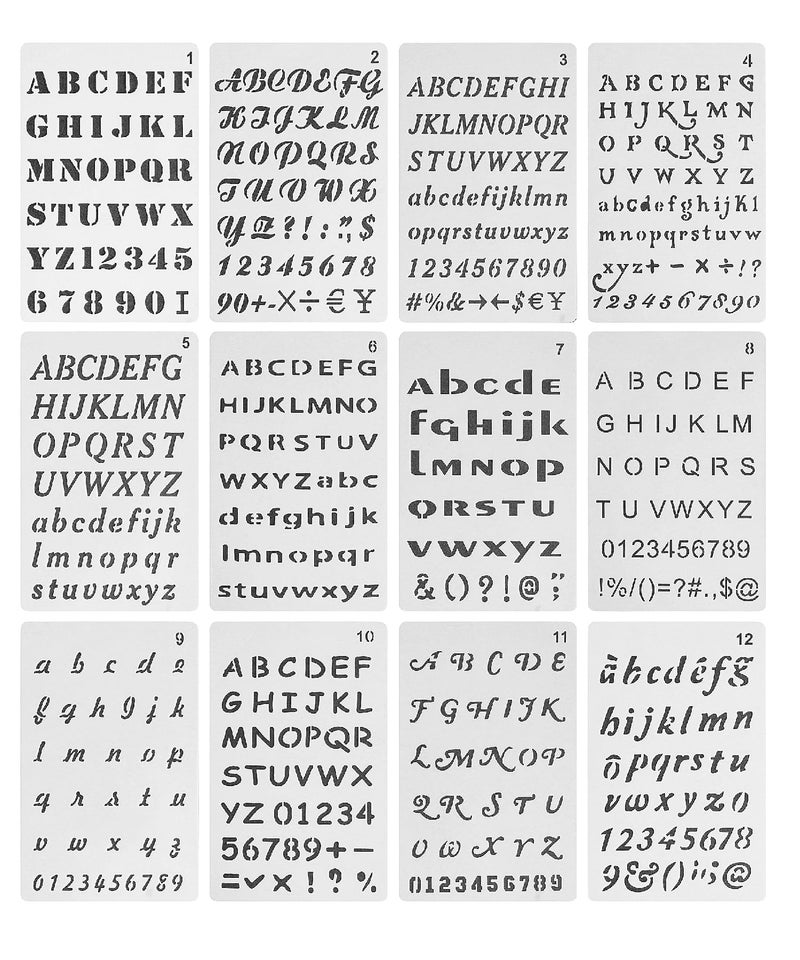 1
A B C D E F
G H I J K L
M N O P Q R
S T U V W X
Y Z 1 2 3 4 5
6 7 8 9 0 I
2
A B C D E F G
H I J J K L M
N O P Q R S
T U V W X
Y Z ? ! : ; " , $
1 2 3 4 5 6 7 8
9 0 + - × ÷ € ¥
3
ABCDEFGHI
JKLMNOPQR
STUVWXYZ
abcdefijklmn
opqrstuvwxyz
1234567890
#%&→←$€¥
4
A B C D E F G
H I J K L M N
O P Q R S T
U V W X Y Z
abcdefghijkl
mnopqrstuvw
xyz+ − × ÷ ! ?
1234567890
5
ABCDEFG
HIJKLMN
OPQRST
UVWXYZ
abcdefijk
lmnopqr
stuvwxyz
6
ABCDEFG
HIJKLMNO
PQRSTUV
WXYZabc
defghijk
lmnopqr
stuvwxyz
7
AbcdE
fqhijk
lMNOp
QRSTU
VWXYZ
&()?!@;"
8
A B C D E F
G H I J K L M
N O P Q R S
T U V W X Y Z
0123456789
!%/()=?#.,$@
9
a b c d e
f g h g j k
l m n o p
q r s t u
v w x y z
0123456789
10
A B C D E F
G H I J K L
M N O P Q R
S T U V W X
Y Z 0 1 2 3 4
5 6 7 8 9 + −
= ✓ × ! ? %
11
A B C D E
F G H I J K
L M N O P
Q R S T U
V W X Y Z
0123456789
12
àbcdéfg̃
hijklmn
ôpqrstu
vwxyz0
12345678
9&()";@